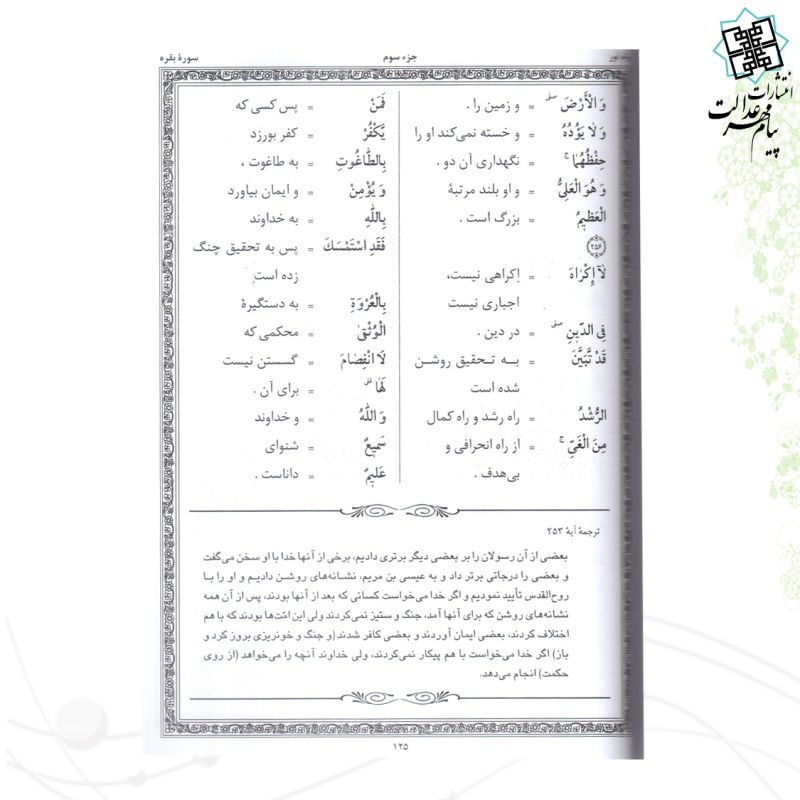 انتشارات
پیام مهر عدالت
سورهٔ بقره
جزء سوم
وَ الْأَرْضَ ۖ = و زمین را .
وَ لٰا یَؤُدُهُ = و خسته نمی‌کند او را
حِفْظُهُمٰا ۚ = نگهداری آن دو .
وَ هُوَ الْعَلِیُّ = و او بلند مرتبهٔ
الْعَظیٖمُ = بزرگ است .
﴿۲۵۶﴾
لٰآ إِکْرٰاهَ = اِکراهی نیست،
اجباری نیست
فِی الدّیٖنِ ۖ = در دین .
قَدْ تَّبَیَّنَ = بـه تـحقیق روشـن
شده است
الرُّشْدُ = راه رشد و راه کمال
مِنَ الْغَیِّ ۚ = از راه انحرافی و
بی‌هدف .
فَمَنْ = پس کسی که
یَّکْفُرْ = کفر بورزد
بِالطّٰاغُوتِ = به طاغوت ،
وَ یُؤْمِنْ = و ایمان بیاورد
بِاللّٰهِ = به خداوند
فَقَدِ اسْتَمْسَكَ = پس به تحقیق چنگ
زده است
بِالْعُرْوَةِ = به دستگیرهٔ
الْوُثْقیٰ = محکمی که
لَا انْفِصٰامَ = گسستن نیست
لَهٰا ۗ = برای آن .
وَ اللّٰهُ = و خداوند
سَمیٖعٌ = شنوای
عَلیٖمٌ = داناست .
ترجمهٔ آیهٔ ۲۵۳
بعضی از آن رسولان را بر بعضی دیگر برتری دادیم، برخی از آنها خدا با او سخن می‌گفت
و بعضی را درجاتی برتر داد و به عیسی بن مریم، نشانه‌های روشن دادیـم و او را بـا
روح‌القدس تأیید نمودیم و اگر خدا می‌خواست کسانی که بعد از آنها بودند، پس از آن همه
نشانه‌های روشن که برای آنها آمد، جنگ و ستیز نمی‌کردند ولی این امّت‌ها بودند که با هم
اختلاف کردند، بعضی ایمان آوردند و بعضی کافر شدند (و جنگ و خونریزی بروز کرد و
باز) اگر خدا می‌خواست با هم پیکار نمی‌کردند، ولی خداوند آنچه را می‌خواهد (از روی
حکمت) انجام می‌دهد.
۱۲۵